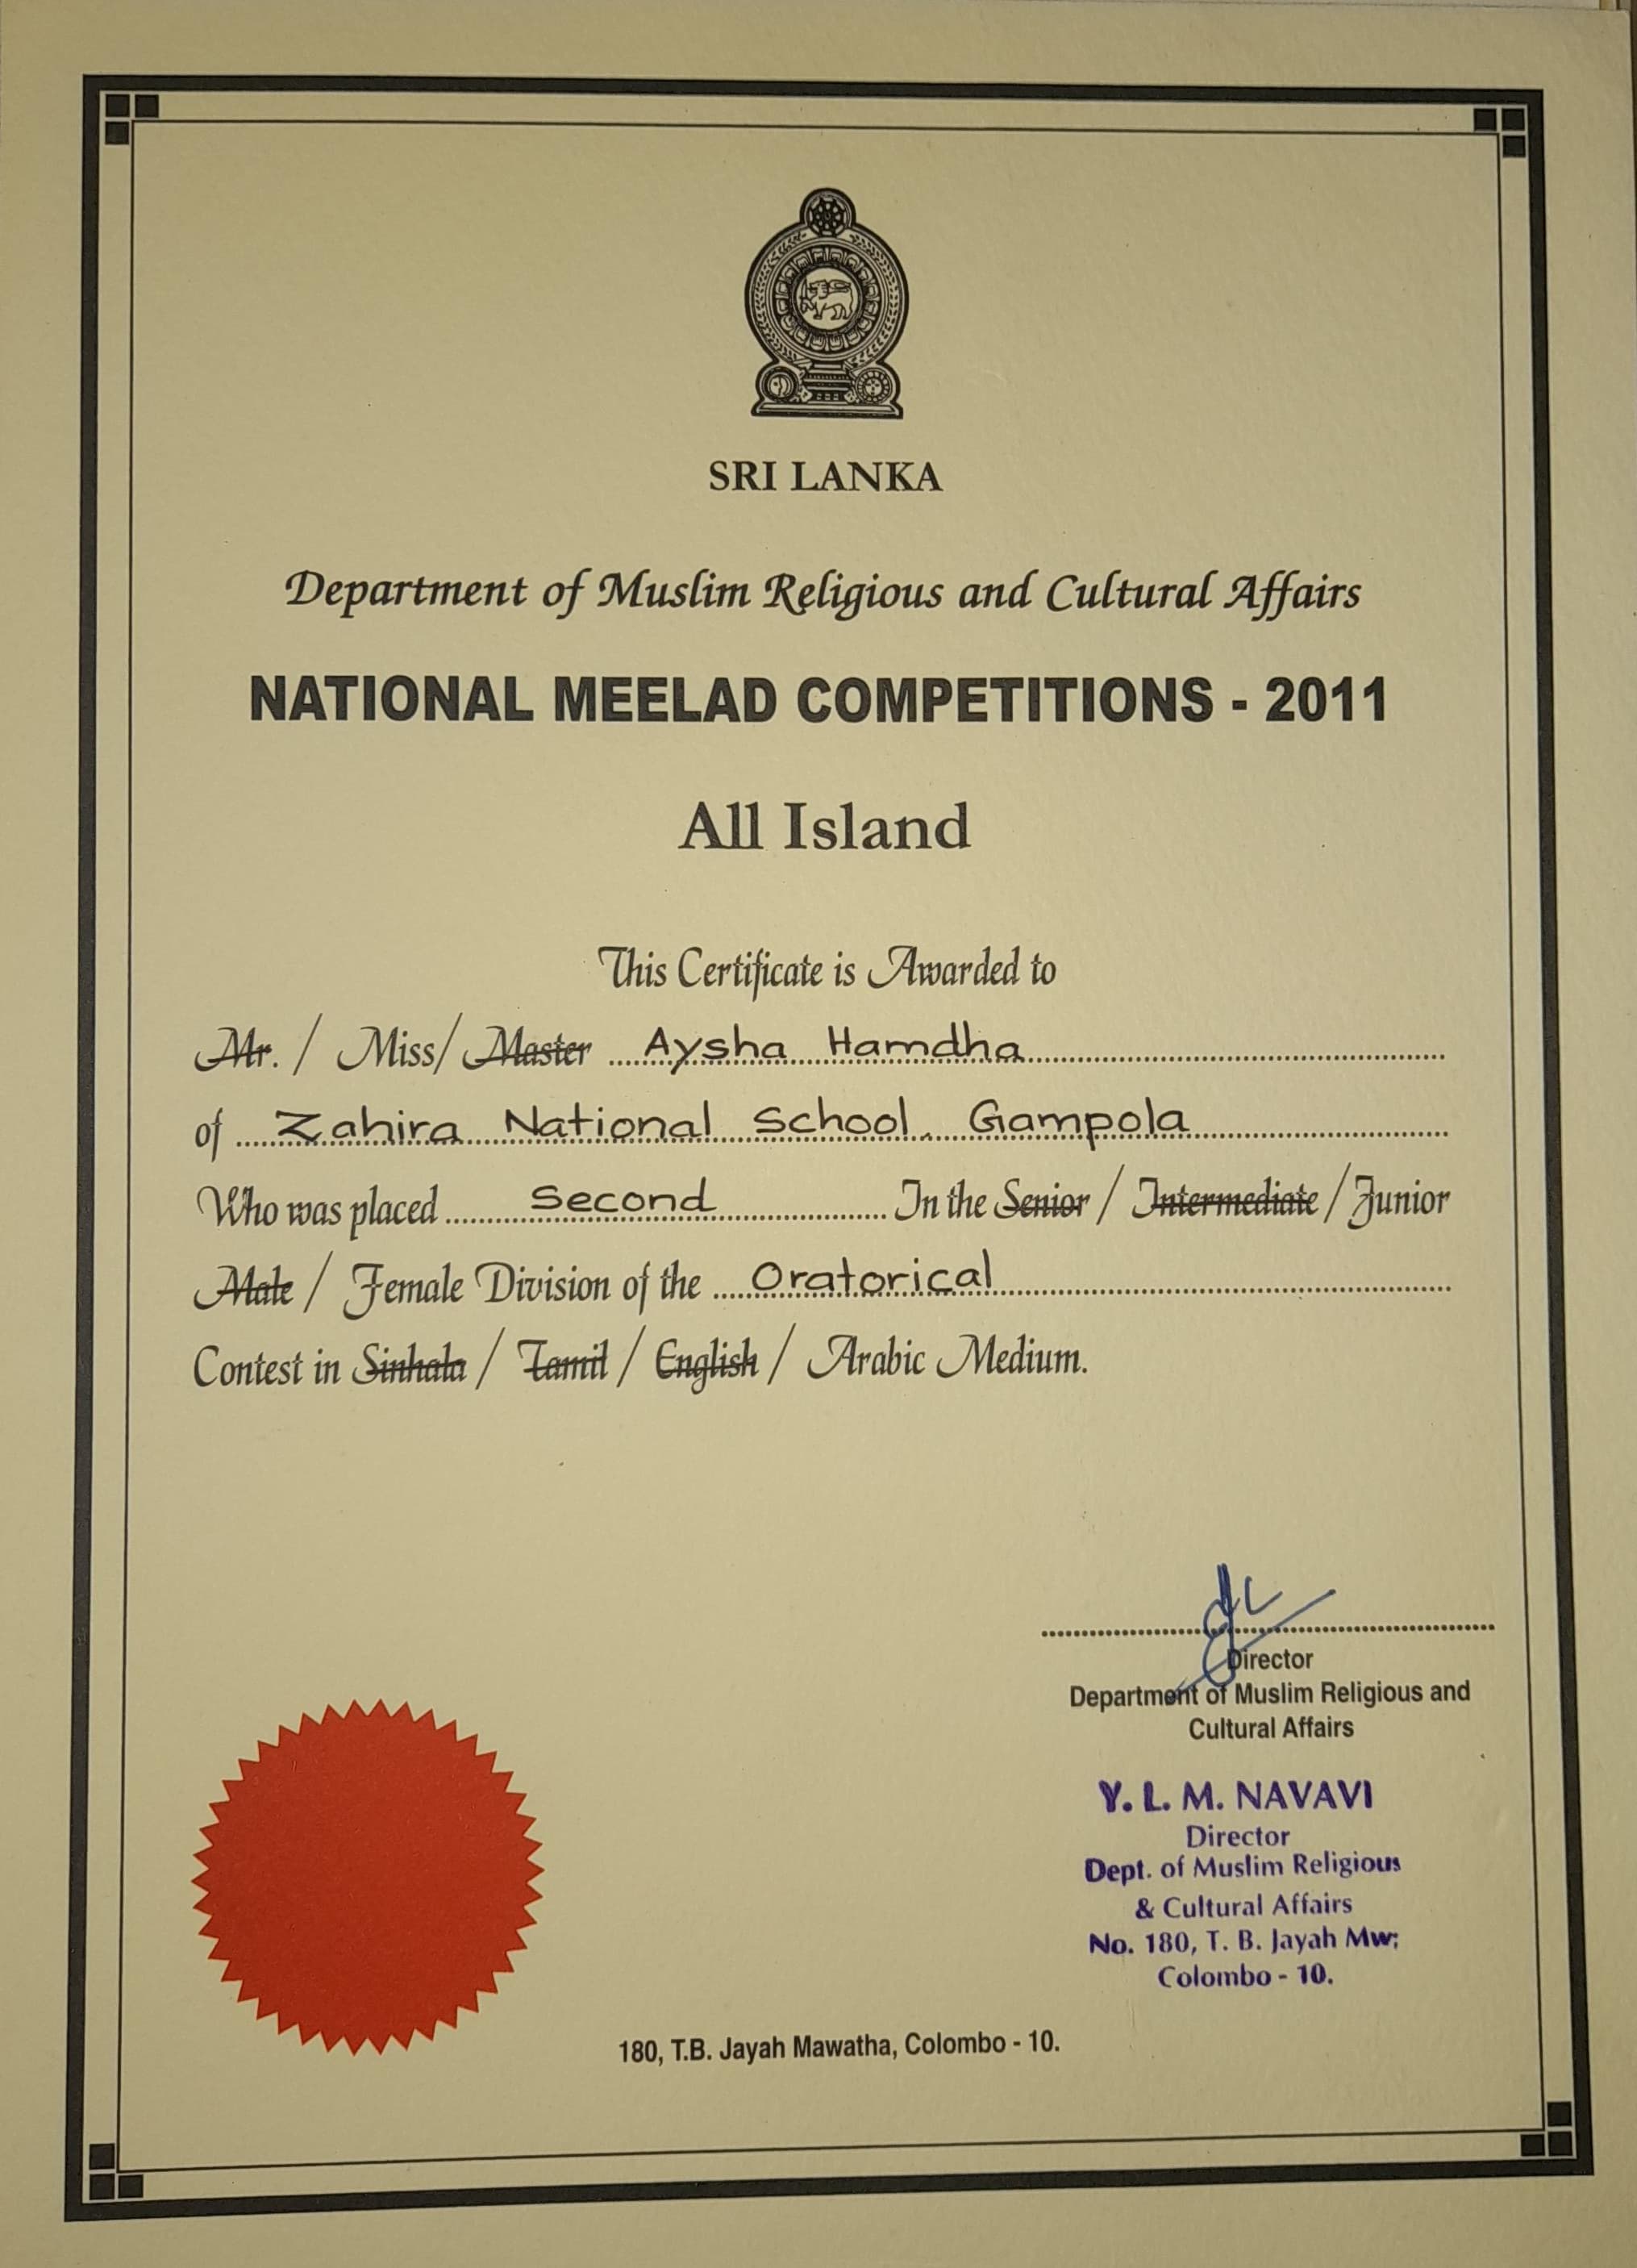 SRI LANKA
Department of Muslim Religious and Cultural Affairs
NATIONAL MEELAD COMPETITIONS - 2011
All Island
This Certificate is Awarded to
Mr. / Miss/ Master Aysha Hamdha
of Zahira National School, Gampola
Who was placed Second In the Senior / Intermediate / Junior
Male / Female Division of the Oratorical
Contest in Sinhala / Tamil / English / Arabic Medium.
Director
Department of Muslim Religious and
Cultural Affairs
Y. L. M. NAVAVI
Director
Dept. of Muslim Religious
& Cultural Affairs
No. 180, T. B. Jayah Mw;
Colombo - 10.
180, T.B. Jayah Mawatha, Colombo - 10.